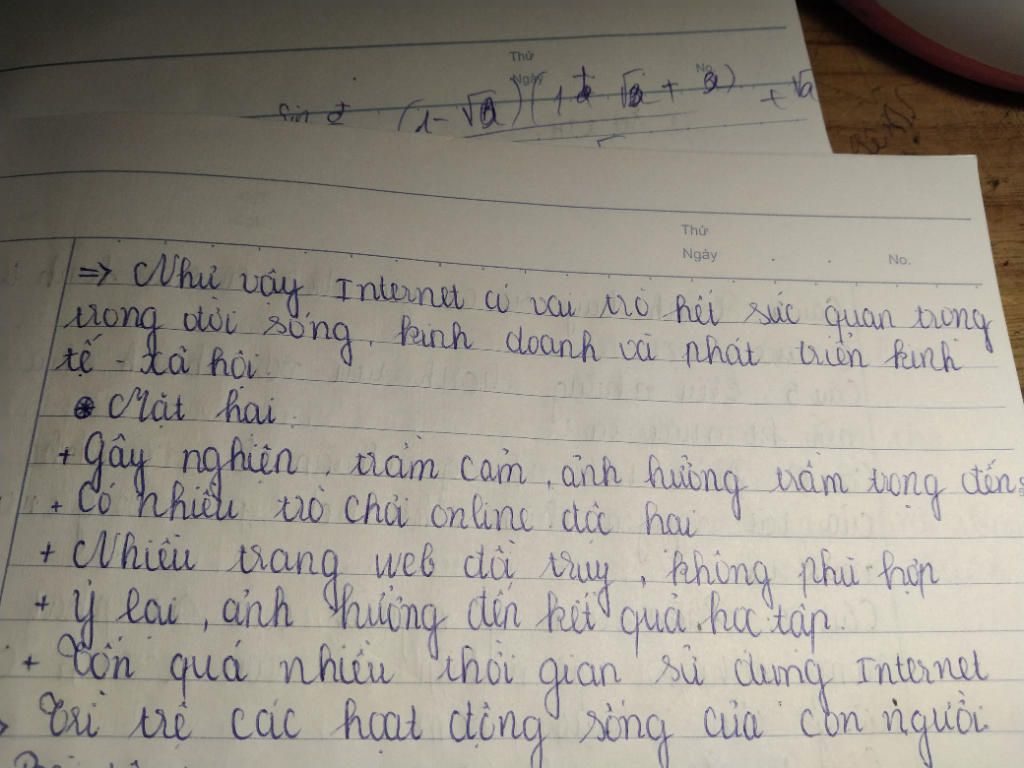 Thứ
Ngày No.
(1-√a)(1 + √a
Thứ
Ngày
No.
=> Như vậy Internet có vai trò hết sức quan trọng
trong đời sống, kinh doanh và phát triển kinh
tế - xã hội
Mặt hại
+ Gây nghiện, trầm cảm, ảnh hưởng trầm trọng đến
+ Có nhiều trò chơi online độc hại
+ Nhiều trang web đồi trụy, không phù hợp
+ Ỷ lại, ảnh hưởng đến kết quả học tập.
+ Tốn quá nhiều thời gian sử dụng Internet
Trì trệ các hoạt động sống của con người